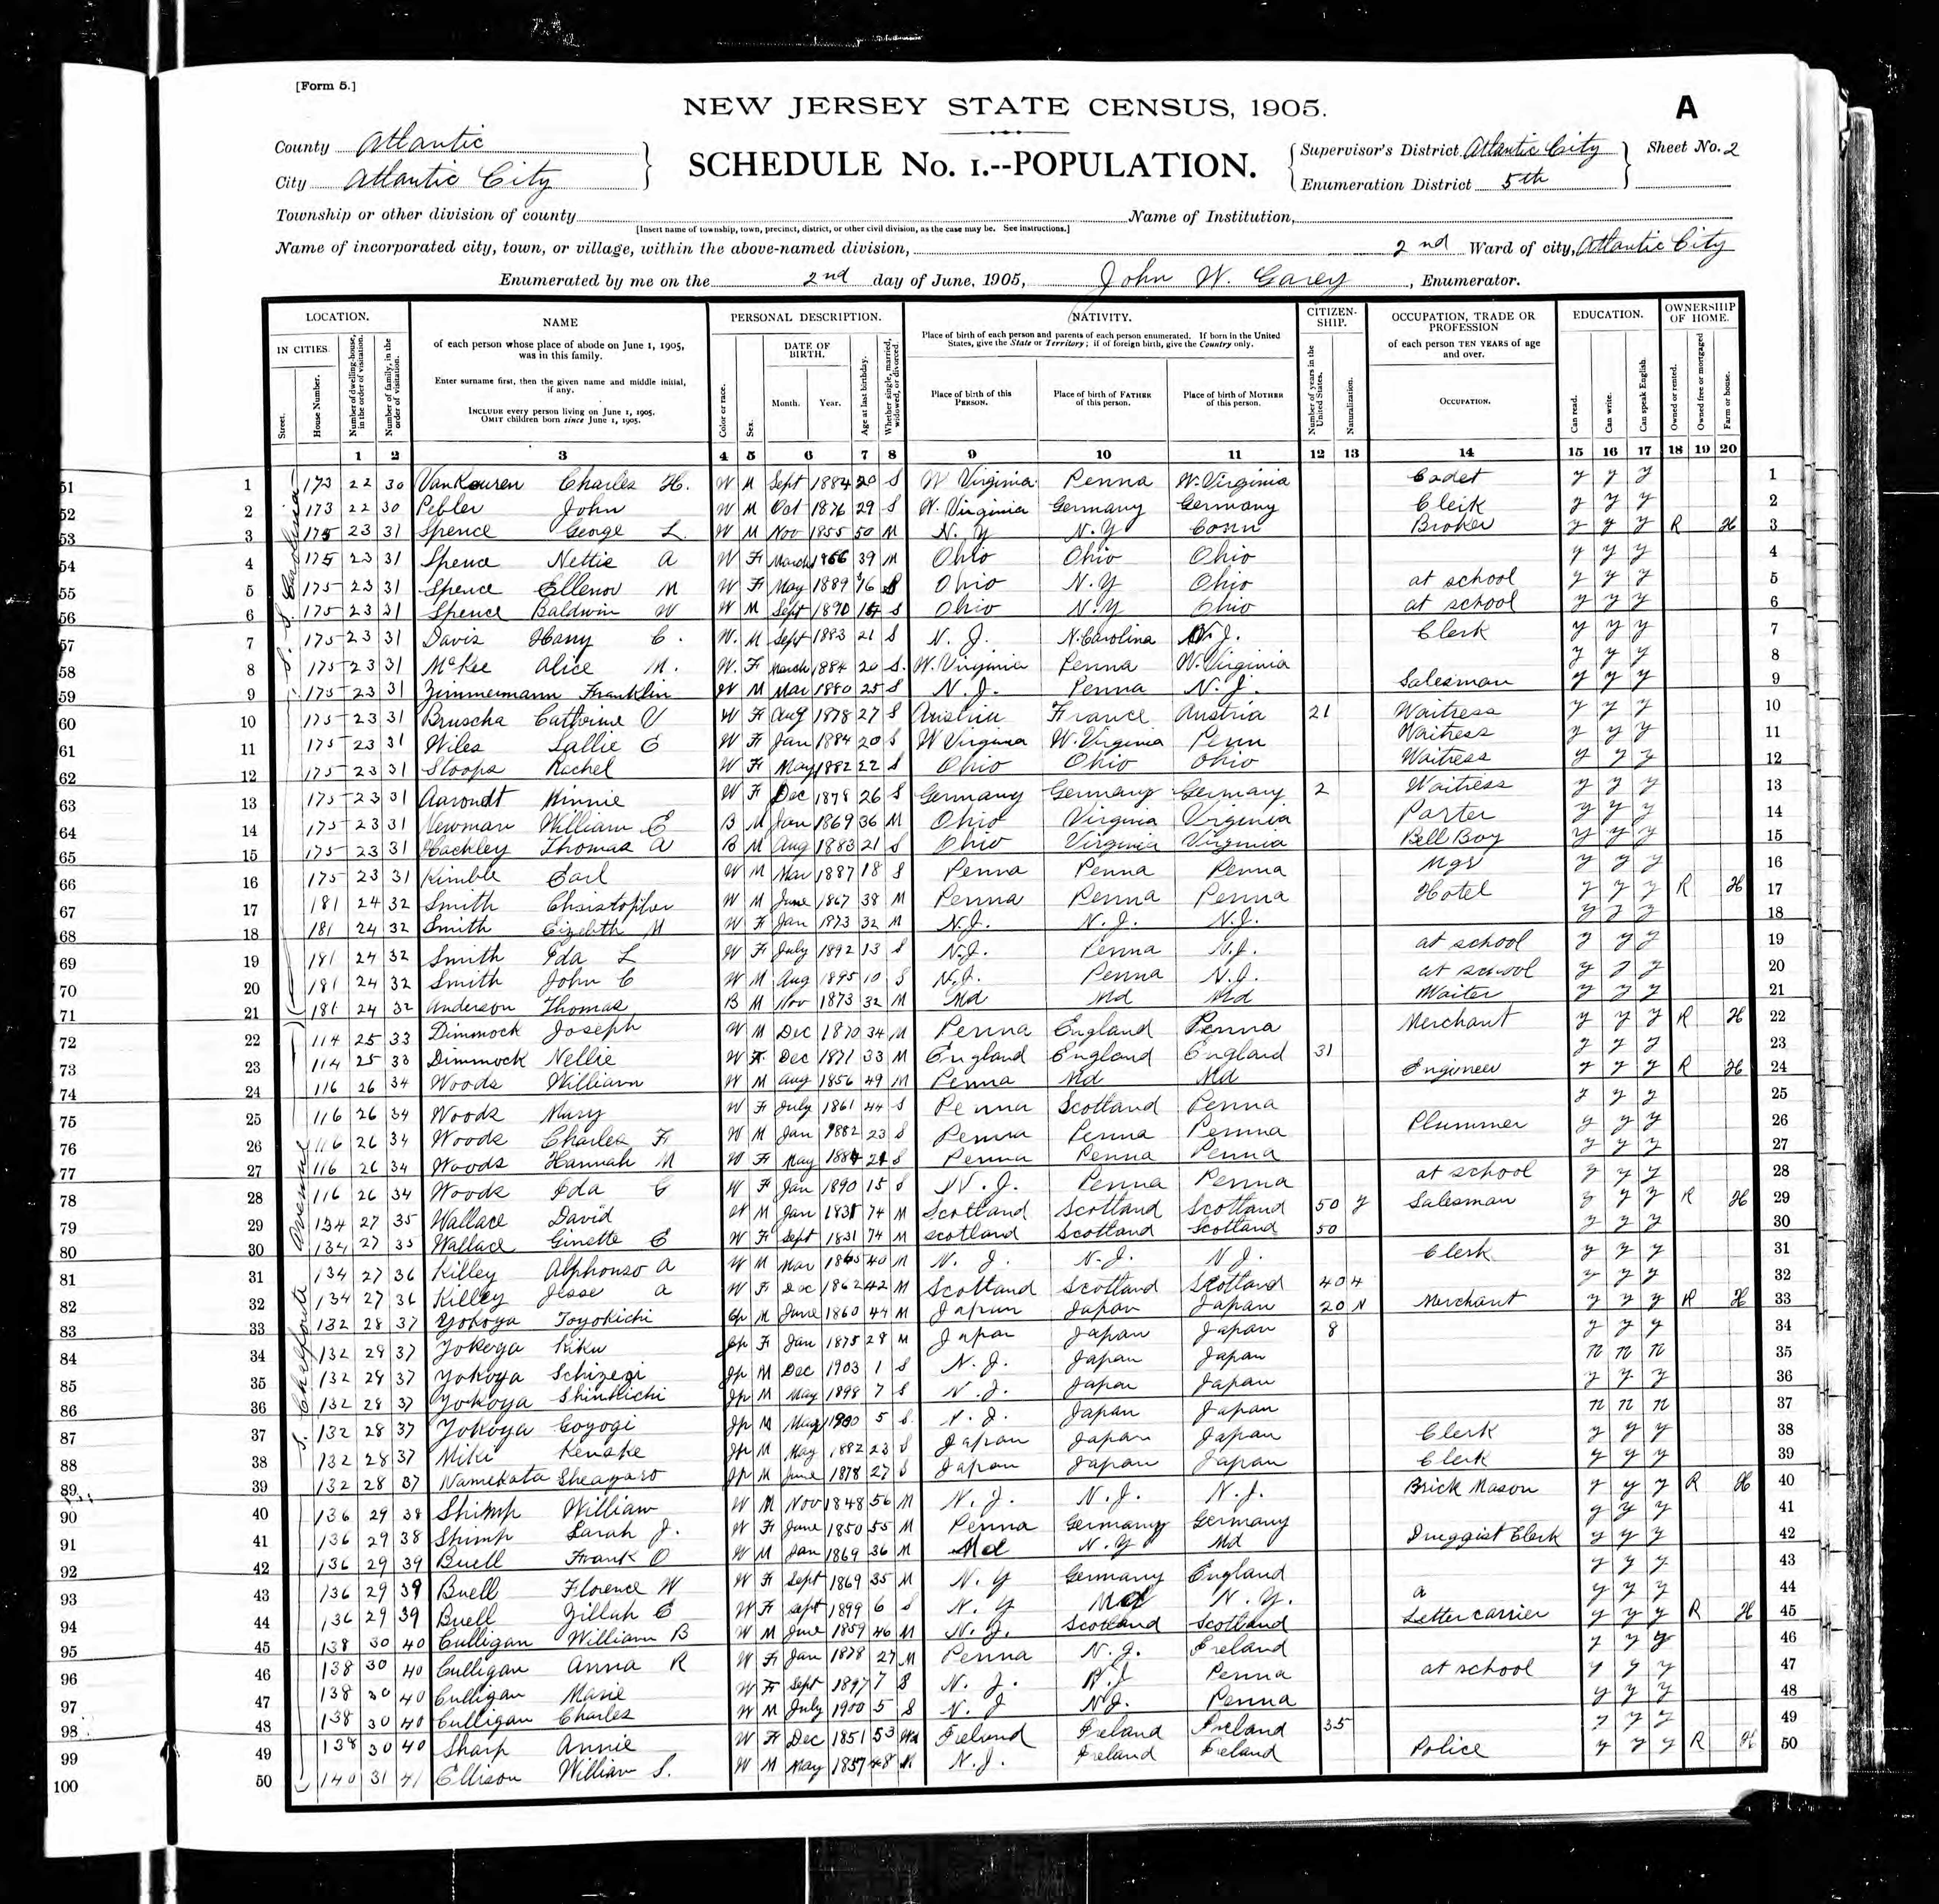 [Form 5.]
NEW JERSEY STATE CENSUS, 1905.
A
County Atlantic
City Atlantic City
SCHEDULE No. 1.--POPULATION.
Supervisor's District Atlantic City Sheet No. 2
Enumeration District 5th
Township or other division of county Name of Institution,
[Insert name of township, town, precinct, district, or other civil division, as the case may be. See instructions.]
Name of incorporated city, town, or village, within the above-named division, 2nd Ward of city, Atlantic City
Enumerated by me on the 2nd day of June, 1905, John W. Garey, Enumerator.
LOCATION. NAME PERSONAL DESCRIPTION. NATIVITY. CITIZENSHIP. OCCUPATION, TRADE OR PROFESSION EDUCATION. OWNERSHIP OF HOME.
IN CITIES. Street. House Number. Number of dwelling-house, in the order of visitation. Number of family, in the order of visitation.
of each person whose place of abode on June 1, 1905, was in this family.
Enter surname first, then the given name and middle initial, if any.
INCLUDE every person living on June 1, 1905. OMIT children born since June 1, 1905.
Color or race. Sex. DATE OF BIRTH. Month. Year. Age at last birthday. Whether single, married, widowed, or divorced.
Place of birth of each person and parents of each person enumerated. If born in the United States, give the State or Territory; if of foreign birth, give the Country only.
Place of birth of this PERSON. Place of birth of FATHER of this person. Place of birth of MOTHER of this person.
Number of years in the United States. Naturalization.
of each person TEN YEARS of age and over. OCCUPATION.
Can read. Can write. Can speak English. Owned or rented. Owned free or mortgaged Farm or house.
1 2 3 4 5 6 7 8 9 10 11 12 13 14 15 16 17 18 19 20
1 173 22 30 VanKeuren Charles H. W M Sept 1884 20 S W Virginia Penna W. Virginia Cadet y y y 1
2 173 22 30 Pebler John W M Oct 1876 29 S W. Virginia Germany Germany Clerk y y y 2
3 175 23 31 Spence George L. W M Nov 1855 50 M N. Y N. Y Conn Broker y y y R H 3
4 175 23 31 Spence Nettie A W F March 1866 39 M Ohio Ohio Ohio y y y 4
5 175 23 31 Spence Ellenor M W F May 1889 16 S Ohio N. Y Ohio at school y y y 5
6 175 23 31 Spence Baldwin W W M Sept 1890 14 S Ohio N. Y Ohio at school y y y 6
7 175 23 31 Davis Harry C. W. M Sept 1883 21 S N. J. N. Carolina N. J. Clerk y y y 7
8 175 23 31 McKee Alice M. W. F March 1884 20 S. W. Virginia Penna W. Virginia y y y 8
9 175 23 31 Zimmermann Franklin W M Mar 1880 25 S N. J. Penna N. J. Salesman y y y 9
10 175 23 31 Bruscha Cathrine V W F Aug 1878 27 S Austria France Austria 21 Waitress y y y 10
11 175 23 31 Wiles Sallie E W F Jan 1884 20 S W Virginia W. Virginia Penn Waitress y y y 11
12 175 23 31 Stoops Rachel W F May 1882 22 S Ohio Ohio Ohio Waitress y y y 12
13 175 23 31 Aarondt Minnie W F Dec 1878 26 S Germany Germany Germany 2 Waitress y y y 13
14 175 23 31 Newman William E B M Jan 1869 36 M Ohio Virginia Virginia Porter y y y 14
15 175 23 31 Hackley Thomas A B M Aug 1883 21 S Ohio Virginia Virginia Bell Boy y y y 15
16 175 23 31 Kimble Earl W M Mar 1887 18 S Penna Penna Penna Mgr y y y 16
17 181 24 32 Smith Christopher W M June 1867 38 M Penna Penna Penna Hotel y y y R H 17
18 181 24 32 Smith Eizebith M W F Jan 1873 32 M N. J. N. J. N. J. y y y 18
19 181 24 32 Smith Ida L W F July 1892 13 S N. J. Penna N. J. at school y y y 19
20 181 24 32 Smith John C W M Aug 1895 10 S N. J. Penna N. J. at school y y y 20
21 181 24 32 Anderson Thomas B M Nov 1873 32 M Md Md Md Waiter y y y 21
22 114 25 33 Dimmock Joseph W M Dec 1870 34 M Penna England Penna Merchant y y y R H 22
23 114 25 33 Dimmock Nellie W F Dec 1871 33 M England England England 31 y y y 23
24 116 26 34 Woods William W M Aug 1856 49 M Penna Md Md Engineer y y y R H 24
25 116 26 34 Woods Mary W F July 1861 44 S Penna Scotland Penna y y y 25
26 116 26 34 Woods Charles F W M Jan 1882 23 S Penna Penna Penna Plummer y y y 26
27 116 26 34 Woods Hannah M W F May 1884 21 S Penna Penna Penna y y y 27
28 116 26 34 Woods Ida C W F Jan 1890 15 S N. J. Penna Penna at school y y y 28
29 134 27 35 Wallace David W M Jan 1831 74 M Scotland Scotland Scotland 50 y Salesman y y y R H 29
30 134 27 35 Wallace Ginette E W F Sept 1831 74 M Scotland Scotland Scotland 50 y y y 30
31 134 27 36 Killey Alphonso A W M Mar 1865 40 M N. J. N. J. N J. Clerk y y y 31
32 134 27 36 Killey Jesse A W F Dec 1862 42 M Scotland Scotland Scotland 40 4 y y y 32
33 132 28 37 Yokoya Toyokichi Jp M June 1860 44 M Japan Japan Japan 20 N Merchant y y y R H 33
34 132 28 37 Yokoya Kiku Jp F Jan 1875 28 M Japan Japan Japan 8 y y y 34
35 132 28 37 Yokoya Schizegi Jp M Dec 1903 1 S N. J. Japan Japan n n n 35
36 132 28 37 Yokoya Shinkichi Jp M May 1898 7 S N. J. Japan Japan y y y 36
37 132 28 37 Yokoya Goyogi Jp M May 1900 5 S. N. J. Japan Japan n n n 37
38 132 28 37 Miki Kenske Jp M May 1882 23 S Japan Japan Japan Clerk y y y 38
39 132 28 37 Namekata Sheagaro Jp M June 1878 27 S Japan Japan Japan Clerk y y y 39
40 136 29 38 Shimp William W M Nov 1848 56 M N. J. N. J. N. J. Brick Mason y y y R H 40
41 136 29 38 Shimp Sarah J. W F June 1850 55 M Penna Germany Germany y y y 41
42 136 29 39 Buell Frank O W M Jan 1869 36 M Md N. Y Md Druggist Clerk y y y 42
43 136 29 39 Buell Florence W W F Sept 1869 35 M N. Y Germany England y y y 43
44 136 29 39 Buell Zillah E W F Sept 1899 6 S N. Y Md N. Y. a y y y 44
45 138 30 40 Culligan William B W M June 1859 46 M N. J. Scotland Scotland Letter carrier y y y R H 45
46 138 30 40 Culligan Anna R W F Jan 1878 27 M Penna N. J. Ireland y y y 46
47 138 30 40 Culligan Marie W F Sept 1897 7 S N. J. N. J Penna at school y y y 47
48 138 30 40 Culligan Charles W M July 1900 5 S N. J N J. Penna y y y 48
49 138 30 40 Sharp Annie W F Dec 1851 53 Wd Ireland Ireland Ireland 35 y y y 49
50 140 31 41 Ellison William S. W M May 1857 48 M N. J. Ireland Ireland Police y y y R H 50
S. Chelfonte Avenue
51
52
53
54
55
56
57
58
59
60
61
62
63
64
65
66
67
68
69
70
71
72
73
74
75
76
77
78
79
80
81
82
83
84
85
86
87
88
89
90
91
92
93
94
95
96
97
98
99
100